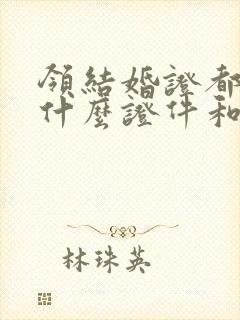 領結婚證都
什麼證件和
林珠英